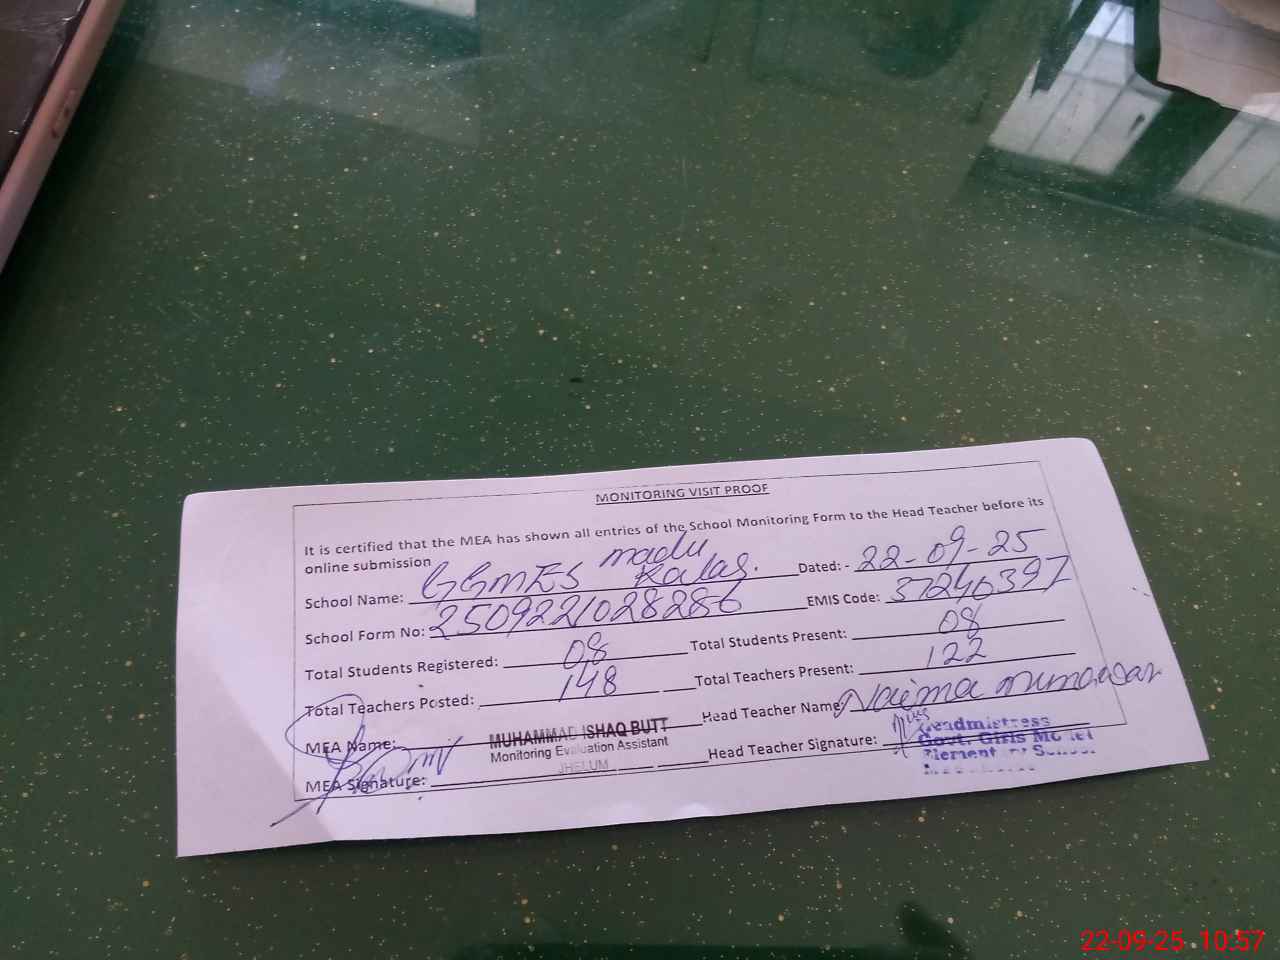 MONITORING VISIT PROOF
It is certified that the MEA has shown all entries of the School Monitoring Form to the Head Teacher before its
online submission
School Name: GGMES madu Kalas. Dated: - 22-09-25
School Form No: 2509221028286 EMIS Code: 37240397
Total Students Registered: 08 Total Students Present: 08
Total Teachers Posted: 148 Total Teachers Present: 122
MEA Name: MUHAMMAD ISHAQ BUTT Head Teacher Name: Naima
Monitoring Evaluation Assistant
JHELUM
MEA Signature: Head Teacher Signature:
Headmistress
Govt. Girls Model
Elementary School
22-09-25 10:57